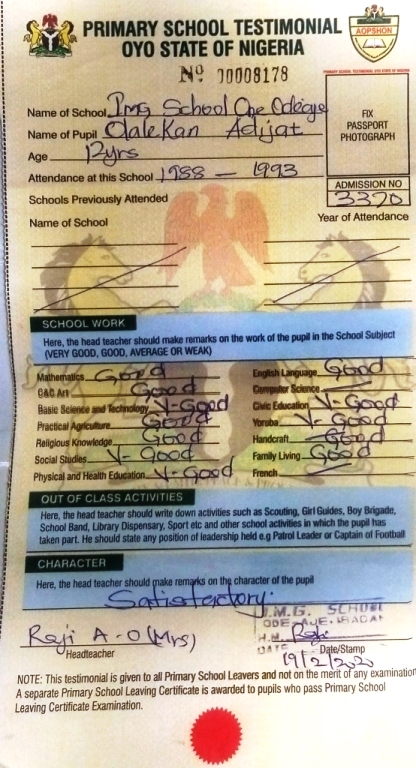 PRIMARY SCHOOL TESTIMONIAL
OYO STATE OF NIGERIA
AOPSHON
PRIMARY SCHOOL TESTIMONIAL OYO STATE OF NIGERIA
No 00008178
Name of School Img School Ode
Name of Pupil Olalekan Adijat
Age 12yrs
Attendance at this School 1988 – 1993
FIX
PASSPORT
PHOTOGRAPH
ADMISSION NO
3370
Schools Previously Attended
Name of School Year of Attendance
SCHOOL WORK
Here, the head teacher should make remarks on the work of the pupil in the School Subject
(VERY GOOD, GOOD, AVERAGE OR WEAK)
Mathematics Good English Language Good
C&C Art Good Computer Science
Basic Science and Technology V-Good Civic Education V-Good
Practical Agriculture Good Yoruba V-Good
Religious Knowledge Good Handcraft Good
Social Studies V-Good Family Living Good
Physical and Health Education V-Good French
OUT OF CLASS ACTIVITIES
Here, the head teacher should write down activities such as Scouting, Girl Guides, Boy Brigade,
School Band, Library Dispensary, Sport etc and other school activities in which the pupil has
taken part. He should state any position of leadership held e.g Patrol Leader or Captain of Football
CHARACTER
Here, the head teacher should make remarks on the character of the pupil
Satisfactory.
I.M.G. SCHOOL
ODE AJE, IBADAN
H.M.
DATE
Raji A-O (Mrs)
Headteacher
Date/Stamp
19/2/2020
NOTE: This testimonial is given to all Primary School Leavers and not on the merit of any examination
A separate Primary School Leaving Certificate is awarded to pupils who pass Primary School
Leaving Certificate Examination.